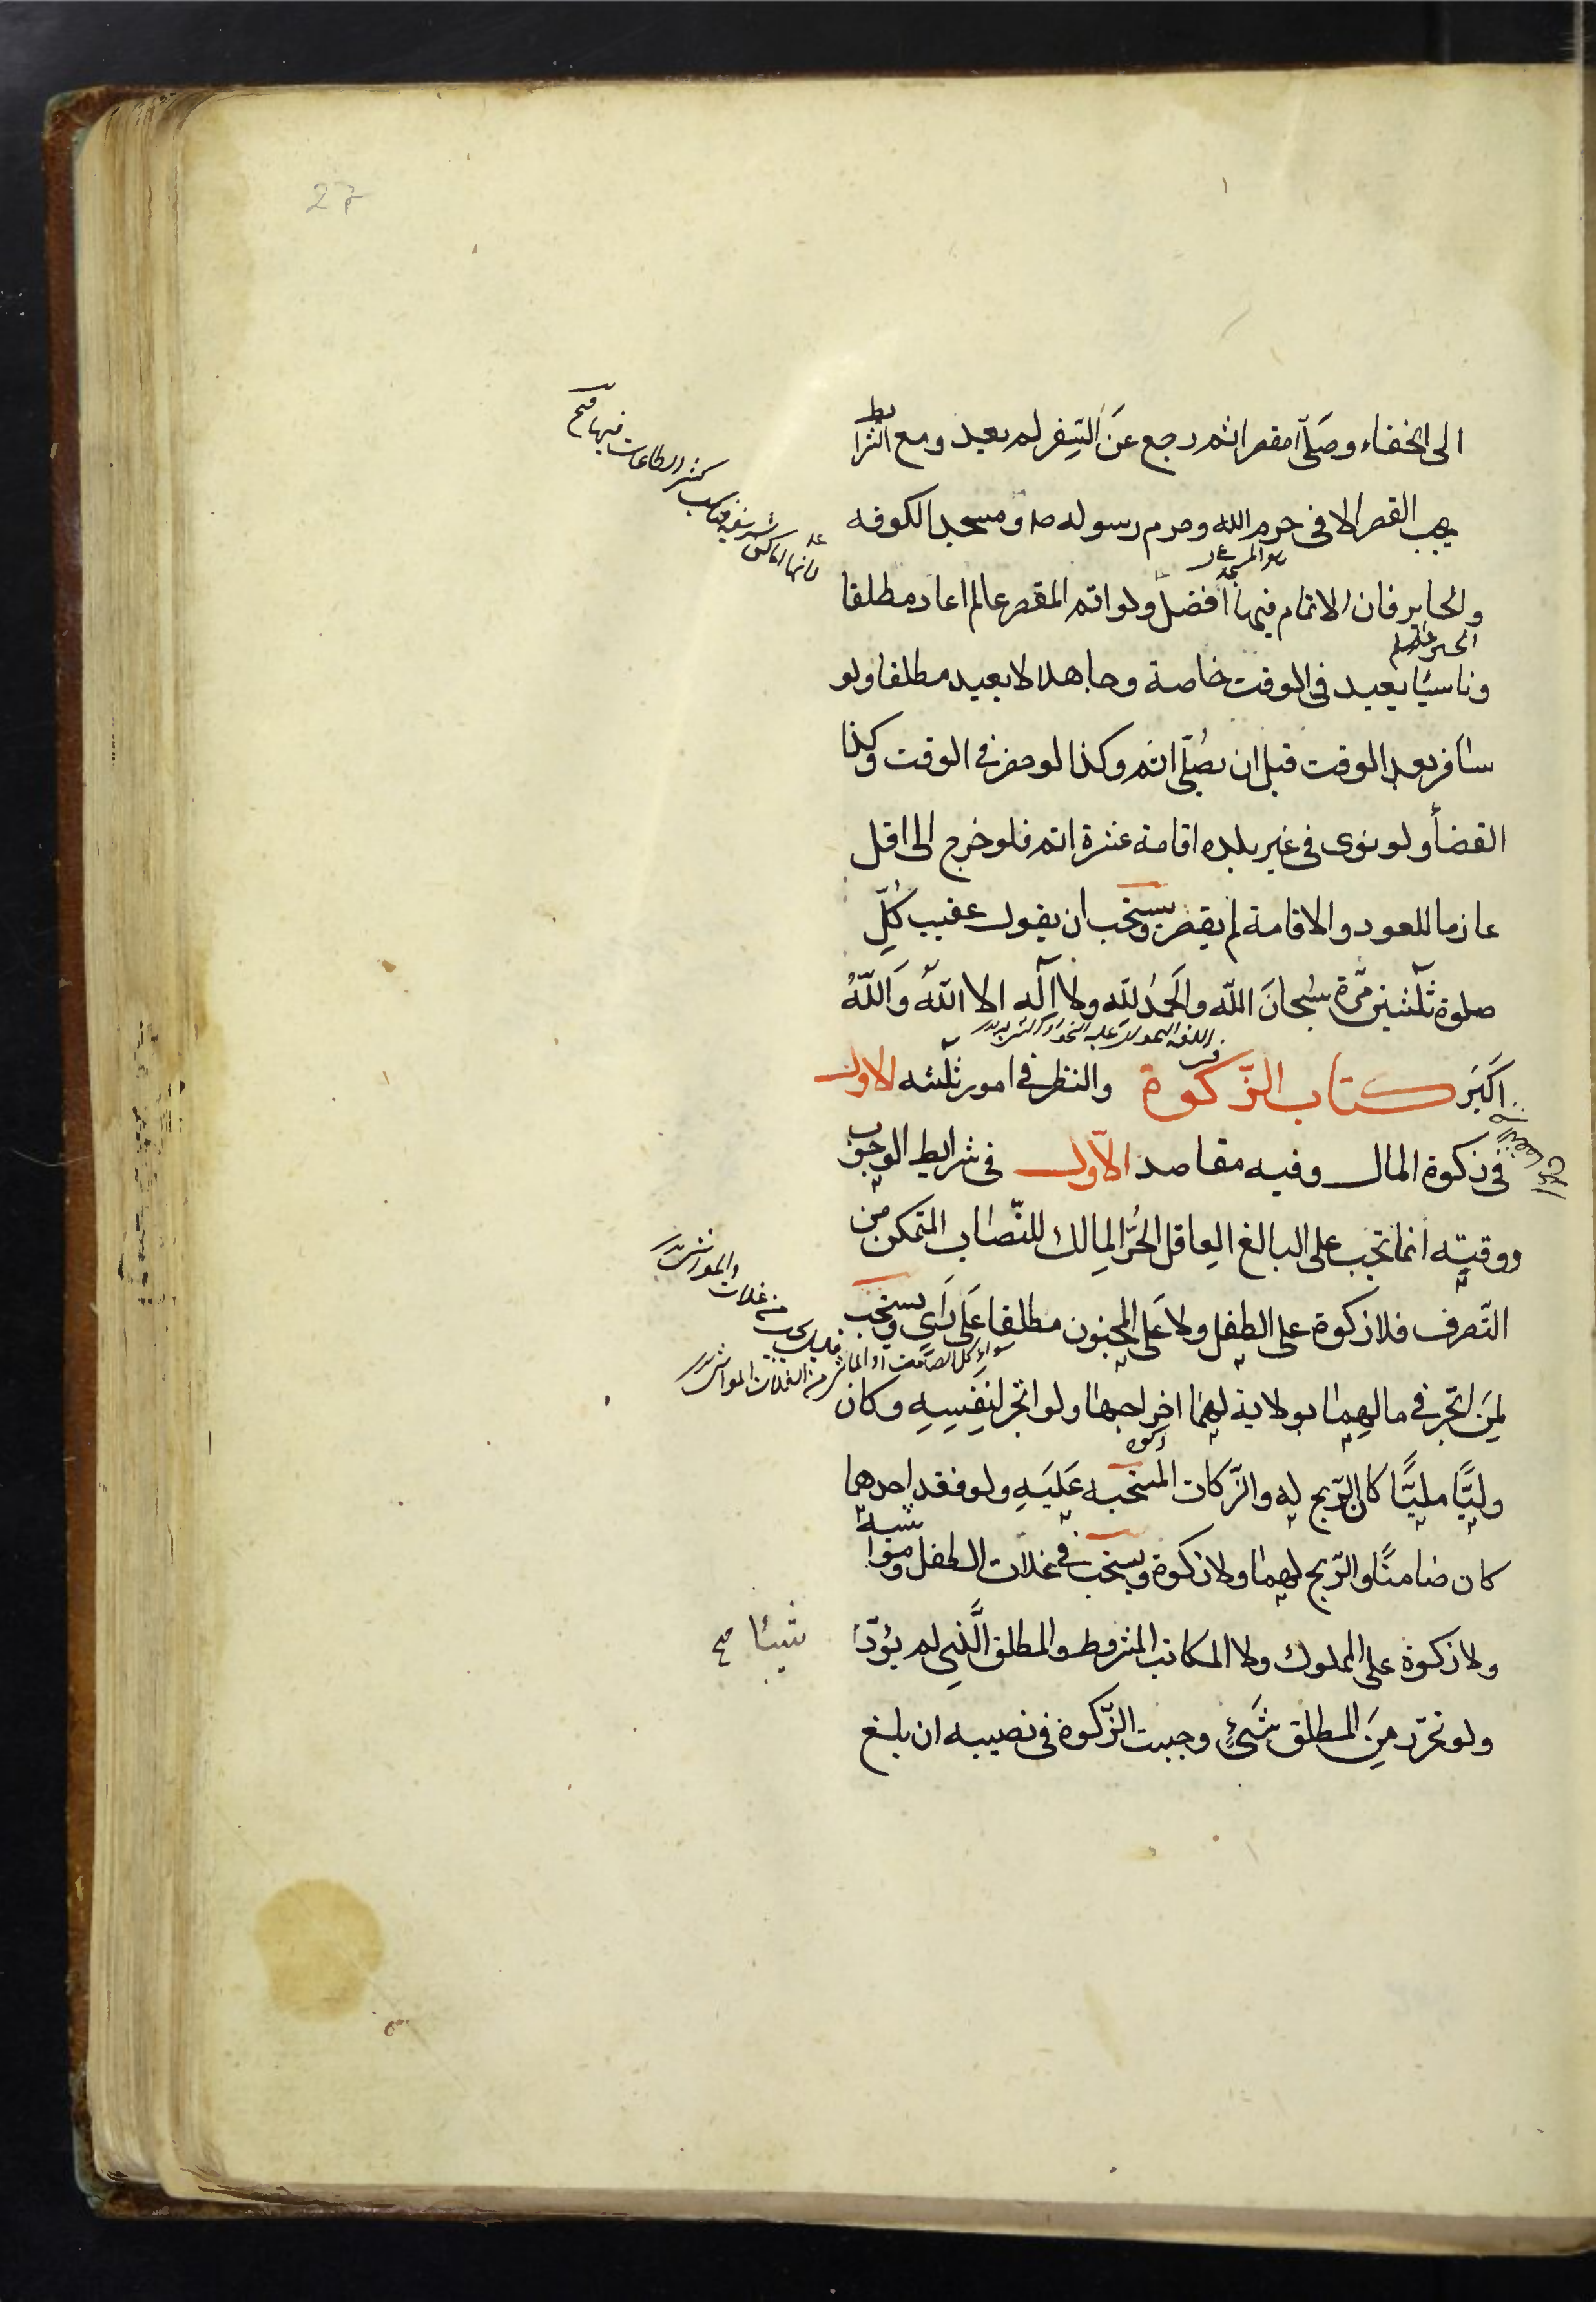 27
الى الخفاء وصَلّى مقصرا ثم رجع عَن السَّفر لم يعيد ومع الشرايط
يجب القصر الا فى حرم الله وحرم رسوله ص ومسجد الكوفه
والحاير فان الاتمام فيها افضل ولو اتم المقصر عالما اعاد مطلقا
وناسيًا يعيد فى الوقت خاصة وجاهلا لا يعيد مطلقا ولو
سافر بعد الوقت قبل ان يصُلّى اتم وكذا لو حضر فى الوقت وكذا
القضأ ولو نوى فى غير بلده اقامة عشرة اتم فلو خرج الى اقل
عازما للعود والاقامة لم يقصر ويستحب ان يقول عقيب كُلِّ
صلوة ثلثين مَرّة سُبحانَ اللّه والحَمدُ لِلّهِ ولا اِلٓه الا اللّهُ وَاللّهُ
اكبَر كتاب الزّكوة والنظر فى امور ثلثه الاول
فى زكوة المال وفيه مقاصد الاّول فى شرايط الوجوب
ووقتِه انما تجب على البالغ العِاقل الحُرّ المِالك للنّصاب المتَمكن من
التّصرف فلا زكوة على الطفل ولا عَلى المجنون مطلقا عَلى رَاىٍ ويستحب
لمِنَ اتجر فى مالهِما بولاية لهمَا اخراجها ولو اتجر لنِفَسِهِ وكان
وليًّا مليًّا كان الرّبح له والزّكات المستحبه عَلَيَهِ ولو فقد احدهما
كان ضامنًا والرّبح لهما ولا زكوة ويستحب فى غلات الطفل ومواشيه
ولا زكوة على المملوك ولا المكاتب المشروط والمطلق الَّذِى لم يؤدّ
شيئا صح
ولو تحرّر مِنَ المطلق شَىءٍ وجبت الزّكوة فى نصيبه ان بلغ